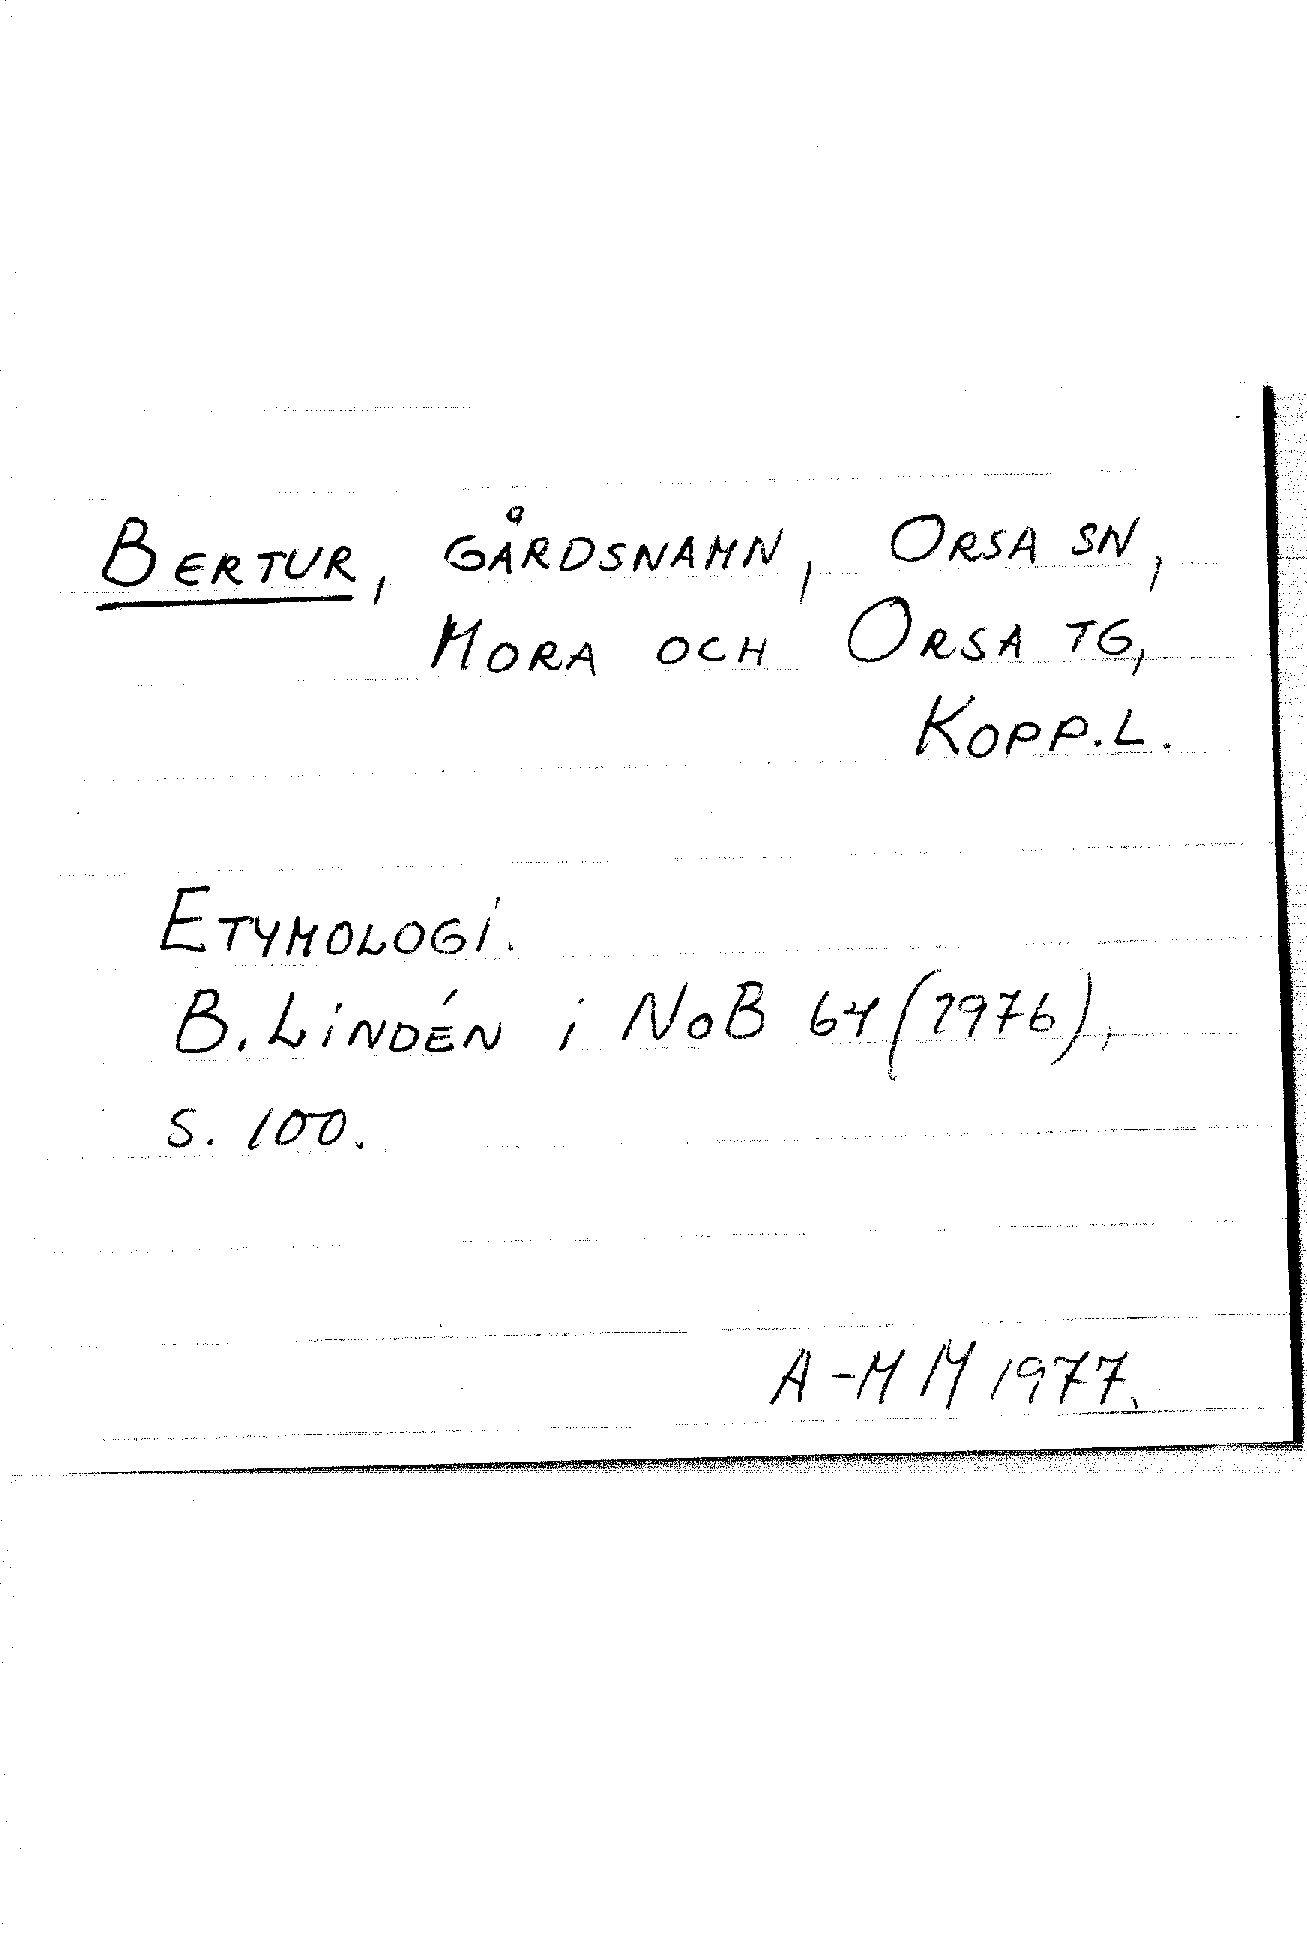 BERTUR, GÅRDSNAMN, ORSA SN,
MORA OCH ORSA TG,
KOPP.L.
ETYMOLOGI.
B. LINDÉN i NoB 64 (1976),
S. 100.
A-M M 1977.